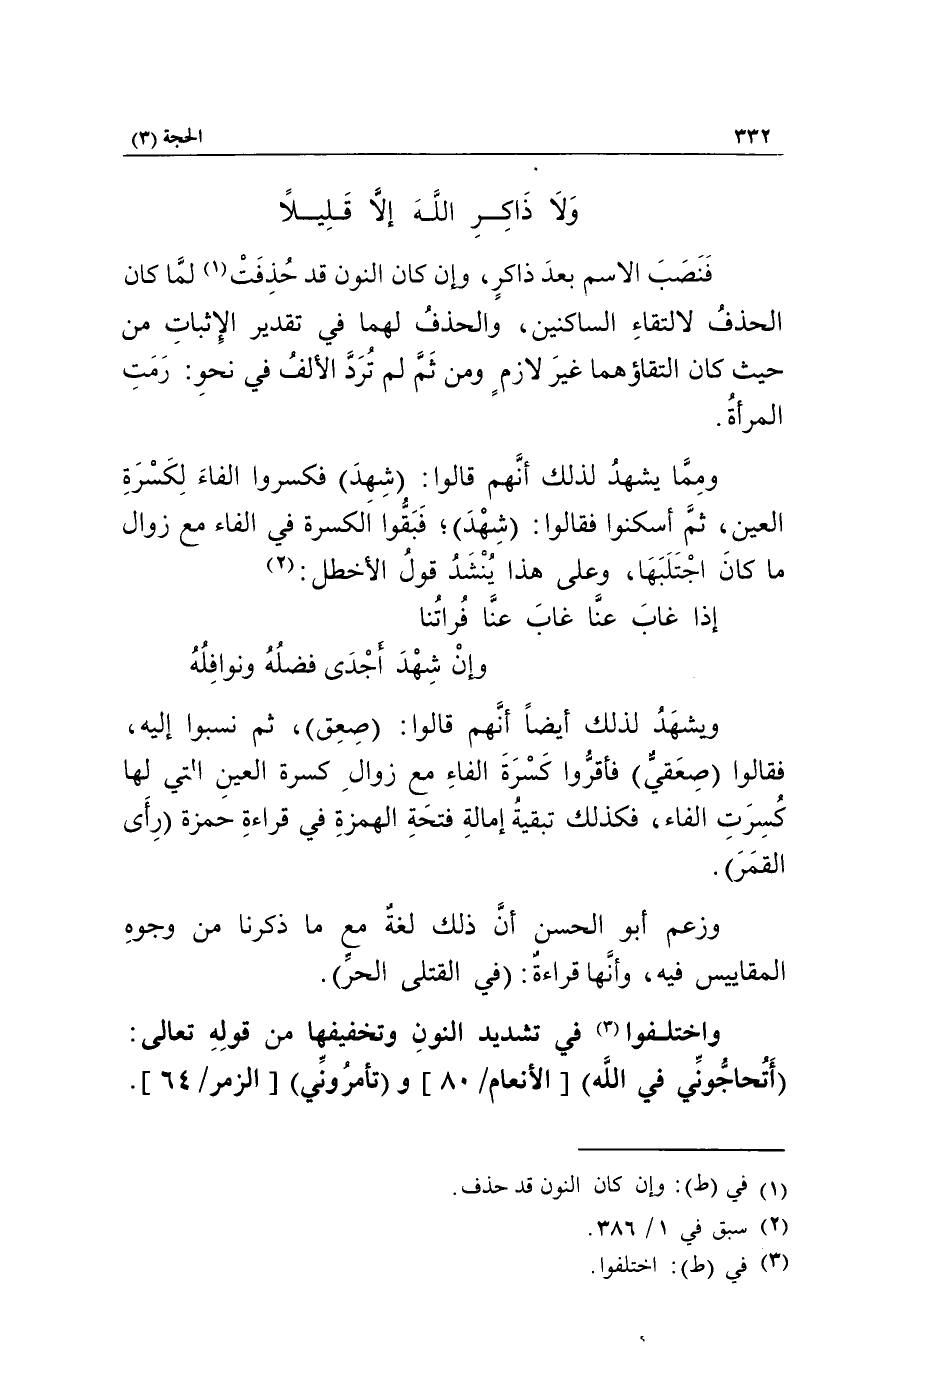 ٣٣٢ الحجة (٣)
وَلَا ذَاكِـرِ اللَّـهَ إلاَّ قَـلِيـلاً
فَنَصَبَ الاسم بعدَ ذاكرٍ، وإن كان النون قد حُذِفَتْ(١) لمَّا كان
الحذفُ لالتقاءِ الساكنين، والحذفُ لهما في تقدير الإِثباتِ من
حيث كان التقاؤهما غيرَ لازمٍ ومن ثَمَّ لم تُرَدَّ الألفُ في نحوِ: رَمَتِ
المرأةُ.
ومِمَّا يشهدُ لذلك أنَّهم قالوا: (شِهِدَ) فكسروا الفاءَ لِكَسْرَةِ
العين، ثمَّ أسكنوا فقالوا: (شِهْدَ)؛ فَبَقُّوا الكسرة في الفاء مع زوال
ما كانَ اجْتَلَبَهَا، وعلى هذا يُنْشَدُ قولُ الأخطل:(٢)
إذا غابَ عنَّا غابَ عنَّا فُراتُنا
وإنْ شِهْدَ أَجْدَى فضلُهُ ونوافِلُهُ
ويشهَدُ لذلك أيضاً أنَّهم قالوا: (صِعِق)، ثم نسبوا إليه،
فقالوا (صِعَقيٌّ) فأقرُّوا كَسْرَةَ الفاءِ مع زوالِ كسرة العينِ التي لها
كُسِرَتِ الفاء، فكذلك تبقيةُ إمالةِ فتحَةِ الهمزةِ في قراءةِ حمزة (رِأَى
القمَرَ).
وزعم أبو الحسن أنَّ ذلك لغةٌ مع ما ذكرنا من وجوهِ
المقاييس فيه، وأنَّها قراءةٌ: (في القتلى الحرِّ).
واختلـفوا(٣) في تشديد النونِ وتخفيفها من قولِهِ تعالى:
(أَتُحاجُّونِّي في اللَّه) [الأنعام/ ٨٠] و (تأمرُونِّي) [الزمر/ ٦٤].
(١) في (ط): وإن كان النون قد حذف.
(٢) سبق في ١/ ٣٨٦.
(٣) في (ط): اختلفوا.